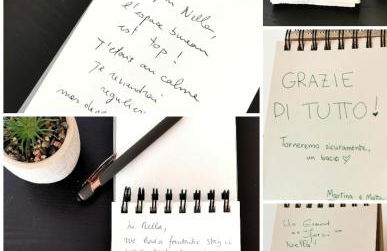 Nella,
l'espace bureau
est top !
J'étais au calme
Je reviendrai
GRAZIE
DI TUTTO!
Torneremo sicuramente,
un bacio ♡
Martina e
Hi Nella,
We had a fantastic stay
Un Grand
Nella!